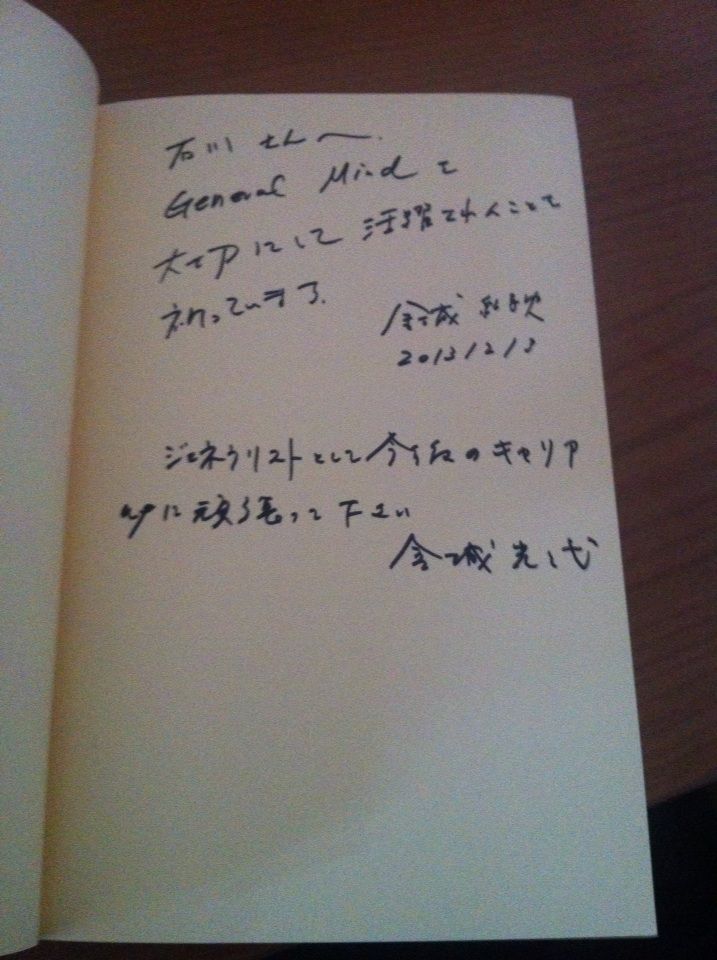 石川さんへ.
General Mindを
大切にして活躍されんことを
祈っています.
金城
2013/2/3
ジェネラリストとして今後のキャリア
upに頑張って下さい
金城光代